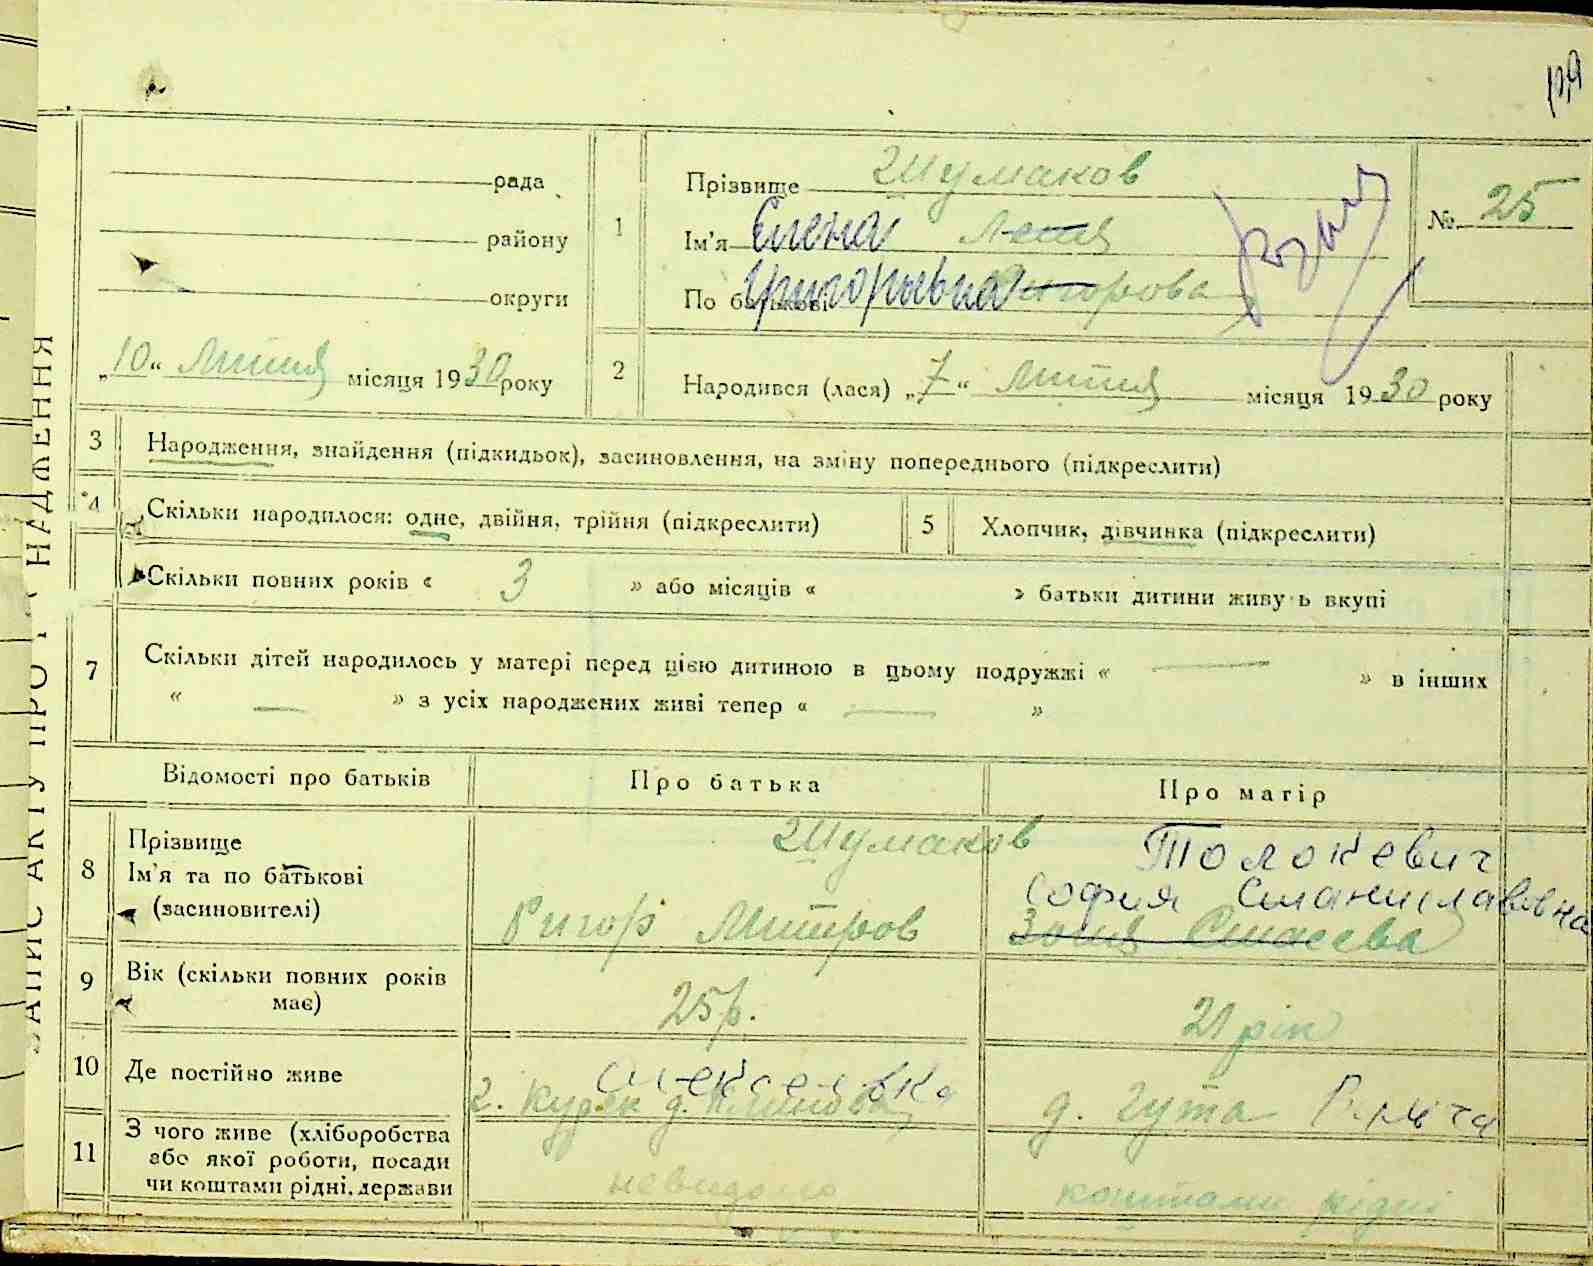 ЗАПИС АКТУ ПРО НАДЖЕННЯ
рада
району
округи
„10“ Липня місяця 1930 року
1
Прізвище Шумаков
Ім'я Елена Леня
По батькові Григорьевна Ригорова
№ 25
2
Народився (лася) „7“ Липня місяця 1930 року
3
Народження, знайдення (підкидьок), засиновлення, на зміну попереднього (підкреслити)
4
Скільки народилося: одне, двійня, трійня (підкреслити)
5
Хлопчик, дівчинка (підкреслити)
Скільки повних років « 3 » або місяців « » батьки дитини живу ь вкупі
7
Скільки дітей народилось у матері перед цією дитиною в цьому подружжі « — » в інших
« — » з усіх народжених живі тепер « — »
Відомості про батьків
Про батька
Про матір
8
Прізвище
Ім'я та по батькові
(засиновителі)
Шумаков
Ригор Митров
Толокевич
София Станиславовна
Зося Стасева
9
Вік (скільки повних років
має)
25 р.
21 рік
10
Де постійно живе
Алексеевка
г. Курск д.
д. Гута
11
З чого живе (хліборобства
або якої роботи, посади
чи коштами рідні, держави
невидомо
коштами рідні